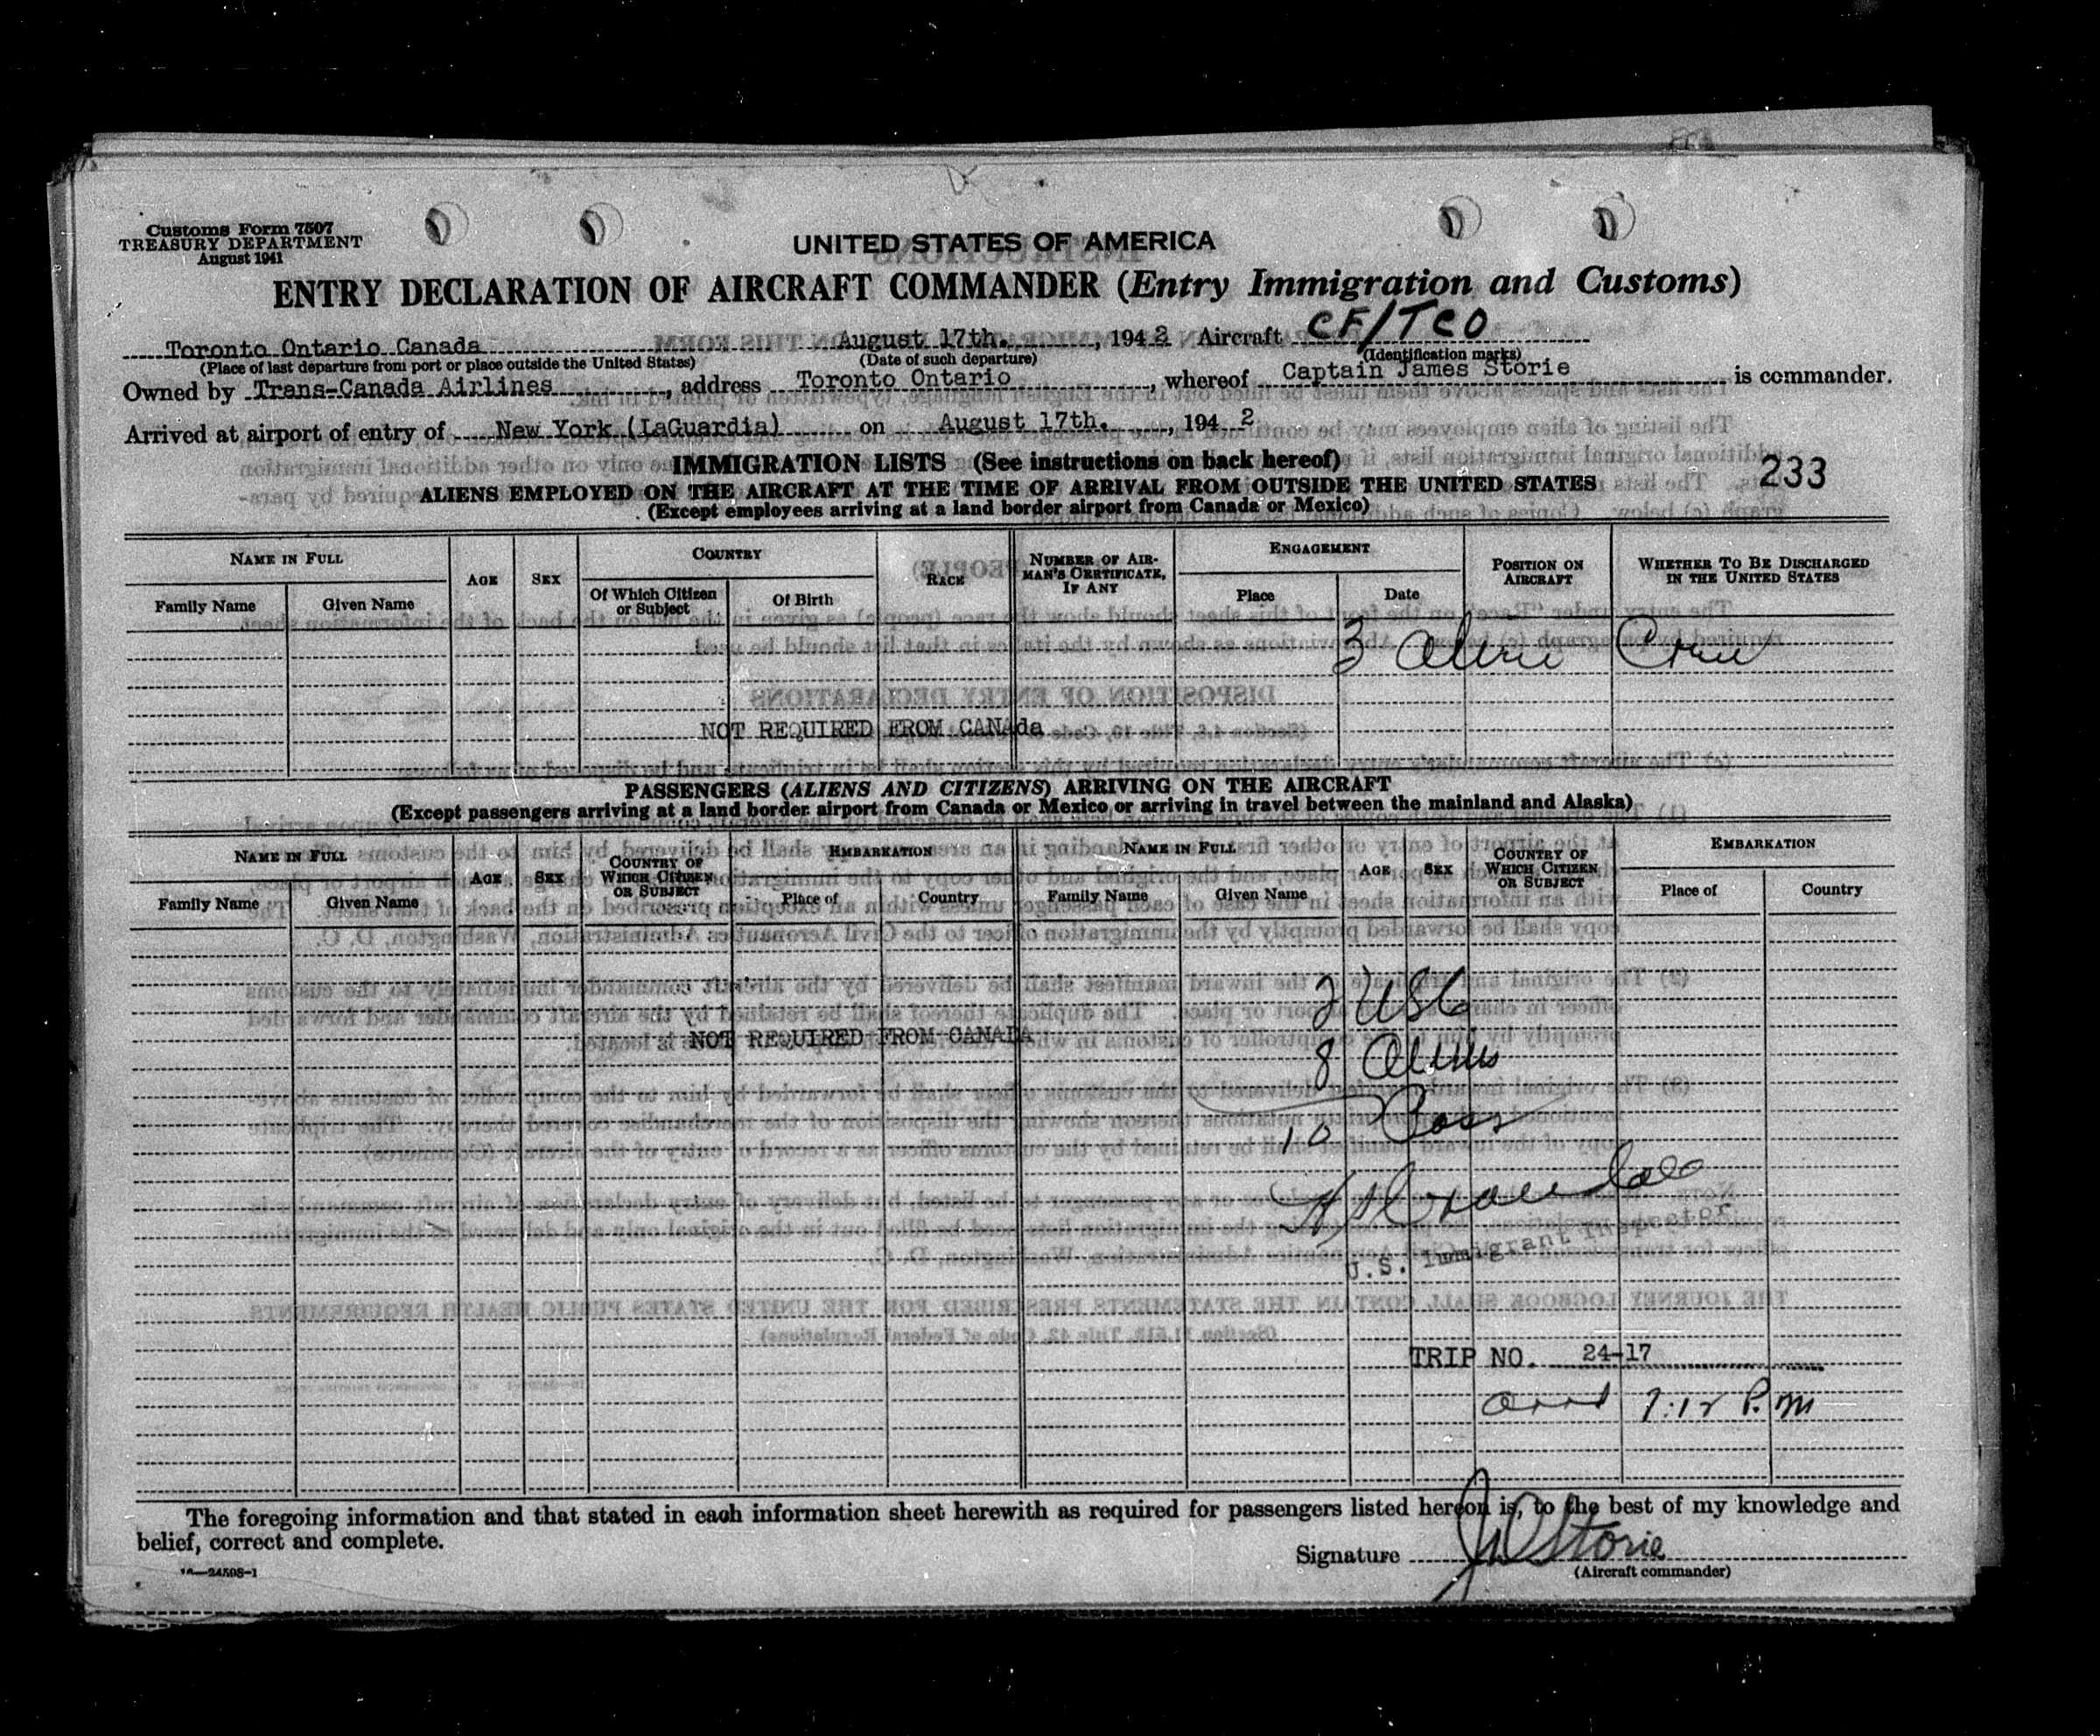 Customs Form 7507
TREASURY DEPARTMENT
August 1941
UNITED STATES OF AMERICA
ENTRY DECLARATION OF AIRCRAFT COMMANDER (Entry Immigration and Customs)
Toronto Ontario Canada August 17th. , 1942 Aircraft CF/TCO
(Place of last departure from port or place outside the United States) (Date of such departure) (Identification marks)
Owned by Trans-Canada Airlines , address Toronto Ontario , whereof Captain James Storie is commander.
Arrived at airport of entry of New York (LaGuardia) on August 17th. , 1942
IMMIGRATION LISTS (See instructions on back hereof)
233
ALIENS EMPLOYED ON THE AIRCRAFT AT THE TIME OF ARRIVAL FROM OUTSIDE THE UNITED STATES
(Except employees arriving at a land border airport from Canada or Mexico)
NAME IN FULL AGE SEX COUNTRY RACE NUMBER OF AIRMAN'S CERTIFICATE, IF ANY ENGAGEMENT POSITION ON AIRCRAFT WHETHER TO BE DISCHARGED IN THE UNITED STATES
Family Name Given Name Of Which Citizen or Subject Of Birth Place Date
3 Alien Crew
NOT REQUIRED FROM CANAda
PASSENGERS (ALIENS AND CITIZENS) ARRIVING ON THE AIRCRAFT
(Except passengers arriving at a land border airport from Canada or Mexico or arriving in travel between the mainland and Alaska)
NAME IN FULL AGE SEX COUNTRY OF WHICH CITIZEN OR SUBJECT EMBARKATION NAME IN FULL AGE SEX COUNTRY OF WHICH CITIZEN OR SUBJECT EMBARKATION
Family Name Given Name Place of Country Family Name Given Name Place of Country
2 USC
NOT REQUIRED FROM CANADA
8 Aliens
10 Pass
U.S. Immigrant Inspector
TRIP NO. 24-17
arrd 7:12 P.M
The foregoing information and that stated in each information sheet herewith as required for passengers listed hereon is, to the best of my knowledge and
belief, correct and complete.
Signature J Storie
(Aircraft commander)
16—24598-1